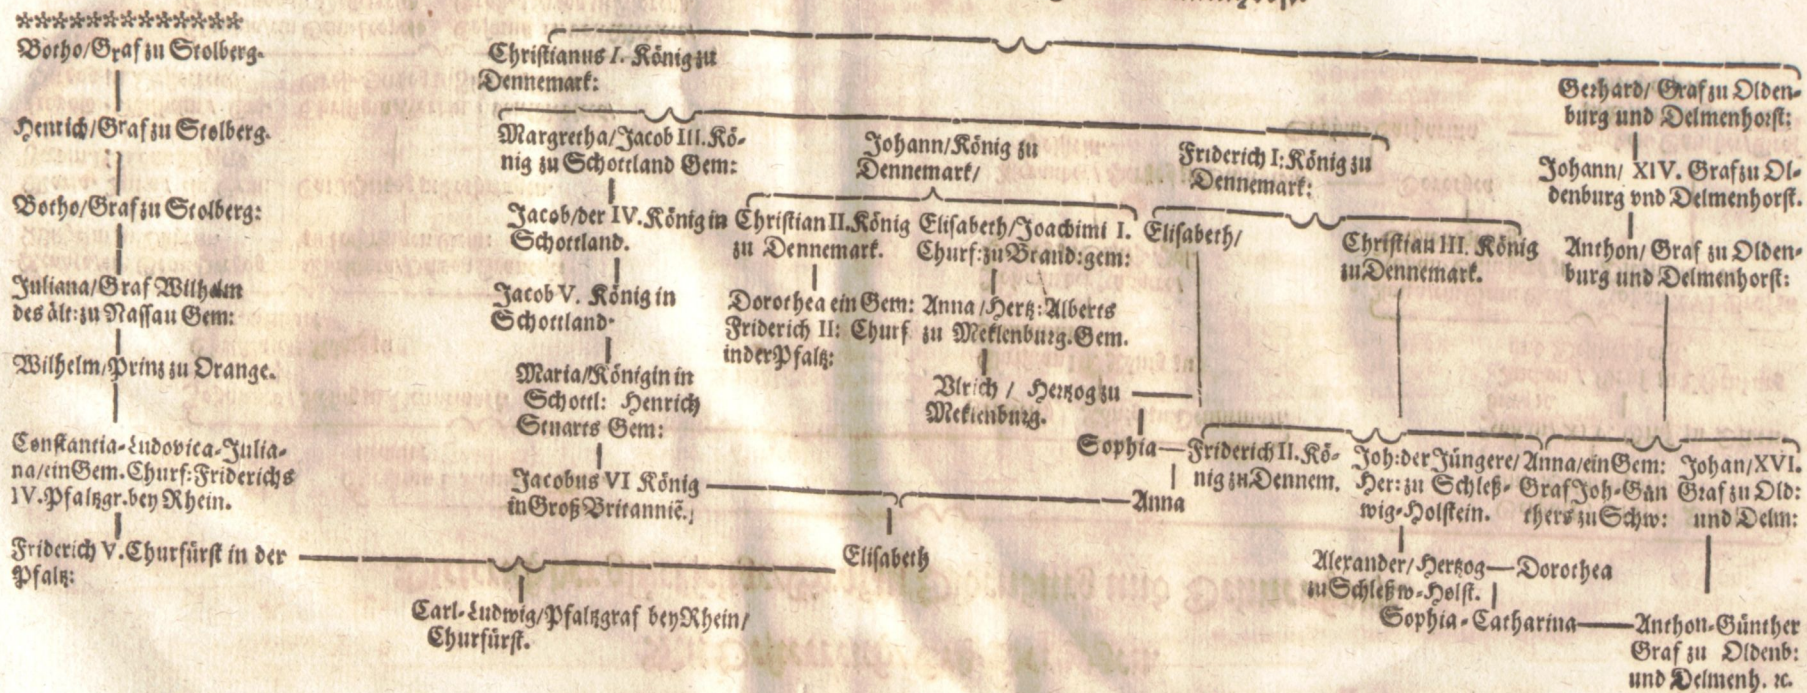 *************
Botho/Graf zu Stolberg.
Henrich/Graf zu Stolberg.
Botho/Graf zu Stolberg:
Juliana/Graf Wilhelm
des ält: zu Nassau Gem:
Wilhelm/Prinz zu Orange.
Constantia-Ludovica-Julia-
na/ein Gem. Churf: Friderichs
IV. Pfaltzgr. bey Rhein.
Friderich V. Churfürst in der
Pfaltz:
Christianus I. König zu
Dennemark:
Margretha/Jacob III. Kö-
nig zu Schottland Gem:
Jacob/der IV. König in
Schottland.
Jacob V. König in
Schottland.
Maria/Königin in
Schottl: Henrich
Stuarts Gem:
Jacobus VI König
in Groß Britanniē.
Johann/König zu
Dennemark/
Christian II. König
zu Dennemark.
Dorothea ein Gem:
Friderich II: Churf
in der Pfaltz:
Elisabeth/Joachimi I.
Churf: zu Brand: gem:
Anna/Hertz: Alberts
zu Meklenburg. Gem.
Vlrich/ Hertzog zu
Meklenburg.
Sophia
Friderich I: König zu
Dennemark:
Elisabeth/
Christian III. König
zu Dennemark.
Friderich II. Kö-
nig zu Dennem.
Anna
Elisabeth
Carl-Ludwig/Pfaltzgraf bey Rhein/
Churfürst.
Joh: der Jüngere/
Her: zu Schleß-
wig-Holstein.
Alexander/Hertzog
zu Schleßw-Holst.
Dorothea
Sophia-Catharina
Gerhard/ Graf zu Olden-
burg und Delmenhorst:
Johann/ XIV. Graf zu Ol-
denburg vnd Delmenhorst.
Anthon/ Graf zu Olden-
burg und Delmenhorst:
Anna/ein Gem:
Graf Joh-Gün
thers zu Schw:
Johan/XVI.
Graf zu Old:
und Delm:
Anthon-Günther
Graf zu Oldenb:
und Delmenh. ꝛc.